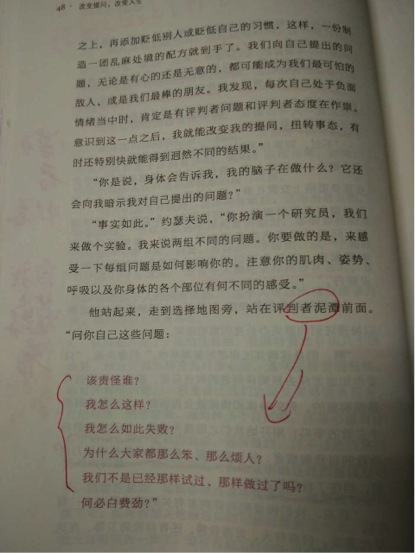 48 · 改变提问,改变人生
之上,再添加贬低别人或贬低自己的习惯,这样,一份制
造一团乱麻处境的配方就到手了。我们向自己提出的问
题,无论是有心的还是无意的,都可能成为我们最可怕的
敌人,或是我们最棒的朋友。我发现,每次自己处于负面
情绪当中时,肯定是有评判者问题和评判者态度在作祟。
意识到这一点之后,我就能改变我的提问,扭转事态,有
时还特别快就能得到迥然不同的结果。”
“你是说,身体会告诉我,我的脑子在做什么?它还
会向我暗示我对自己提出的问题?”
“事实如此。”约瑟夫说,“你扮演一个研究员,我们
来做个实验。我来说两组不同的问题。你要做的是,来感
受一下每组问题是如何影响你的。注意你的肌肉、姿势、
呼吸以及你身体的各个部位有何不同的感受。”
他站起来,走到选择地图旁,站在评判者泥潭前面。
“问你自己这些问题:
该责怪谁?
我怎么这样?
我怎么如此失败?
为什么大家都那么笨、那么烦人?
我们不是已经那样试过、那样做过了吗?
何必白费劲?”